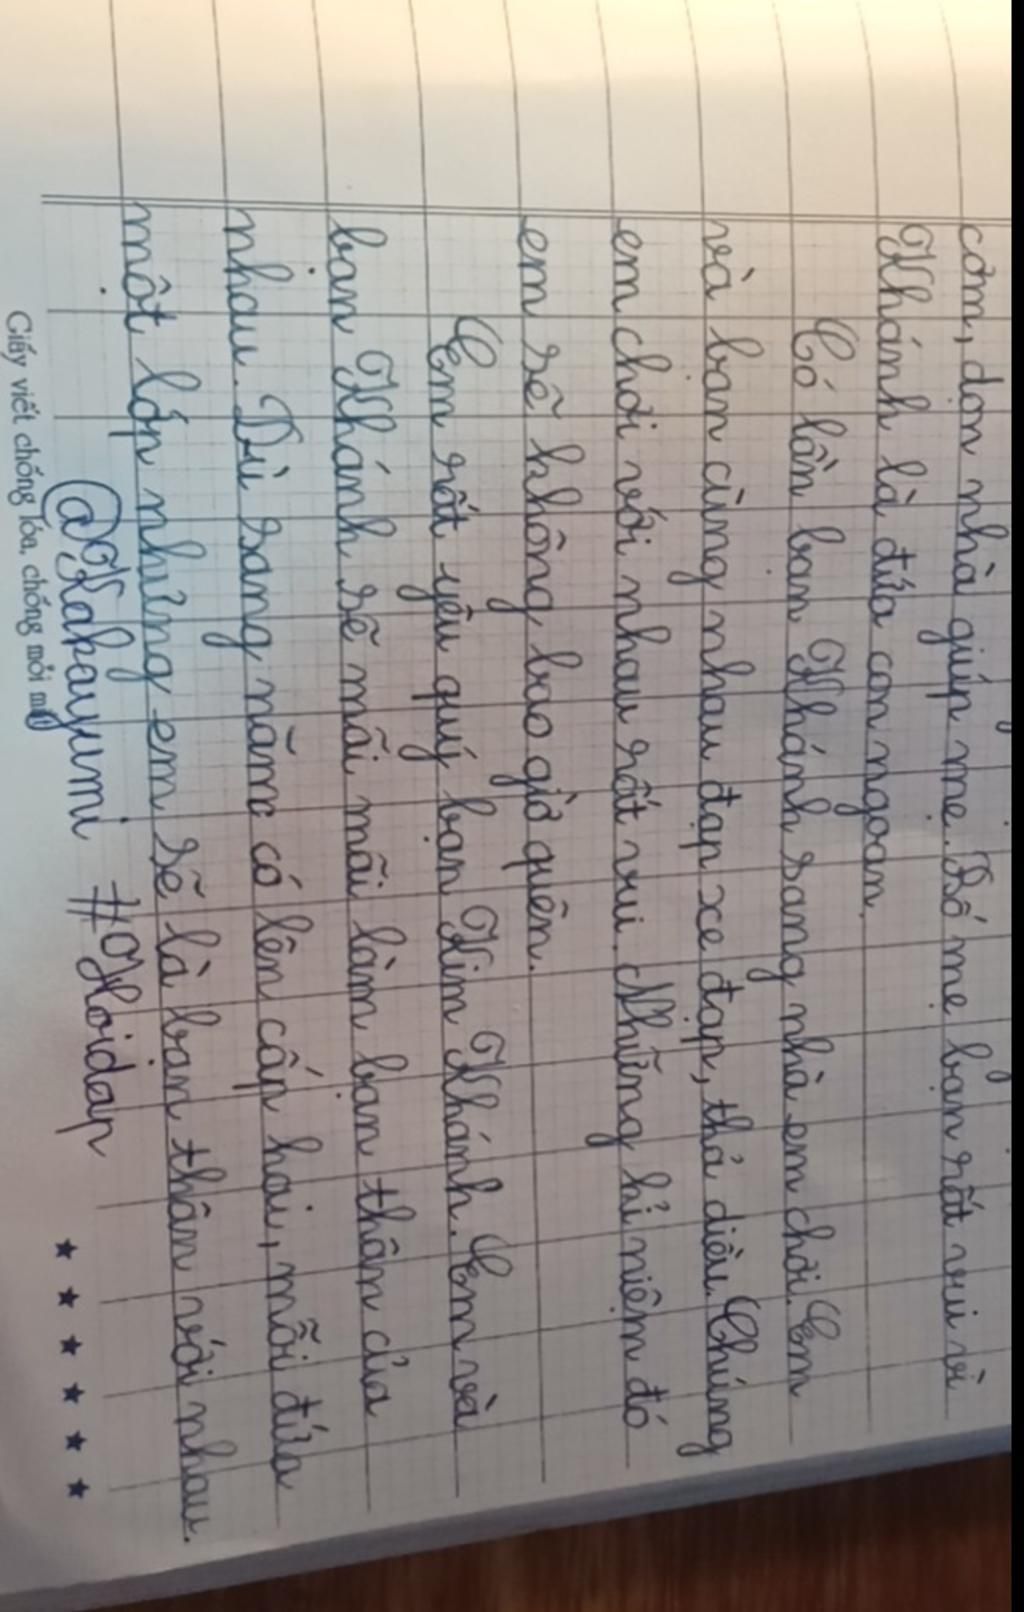 cơm, dọn nhà giúp mẹ. Bố mẹ bạn rất vui vì
Khánh là đứa con ngoan.
Có lần bạn Khánh sang nhà em chơi. Em
và bạn cùng nhau đạp xe đạp, thả diều. Chúng
em chơi với nhau rất vui. Những kỉ niệm đó
em sẽ không bao giờ quên.
Em rất yêu quý bạn Kim Khánh. Em và
bạn Khánh sẽ mãi mãi làm bạn thân của
nhau. Dù sang năm có lên cấp hai, mỗi đứa
một lớp nhưng em sẽ là bạn thân với nhau.
@Kakayumi #Hoidap
Giấy viết chống lóa, chống mỏi mắt